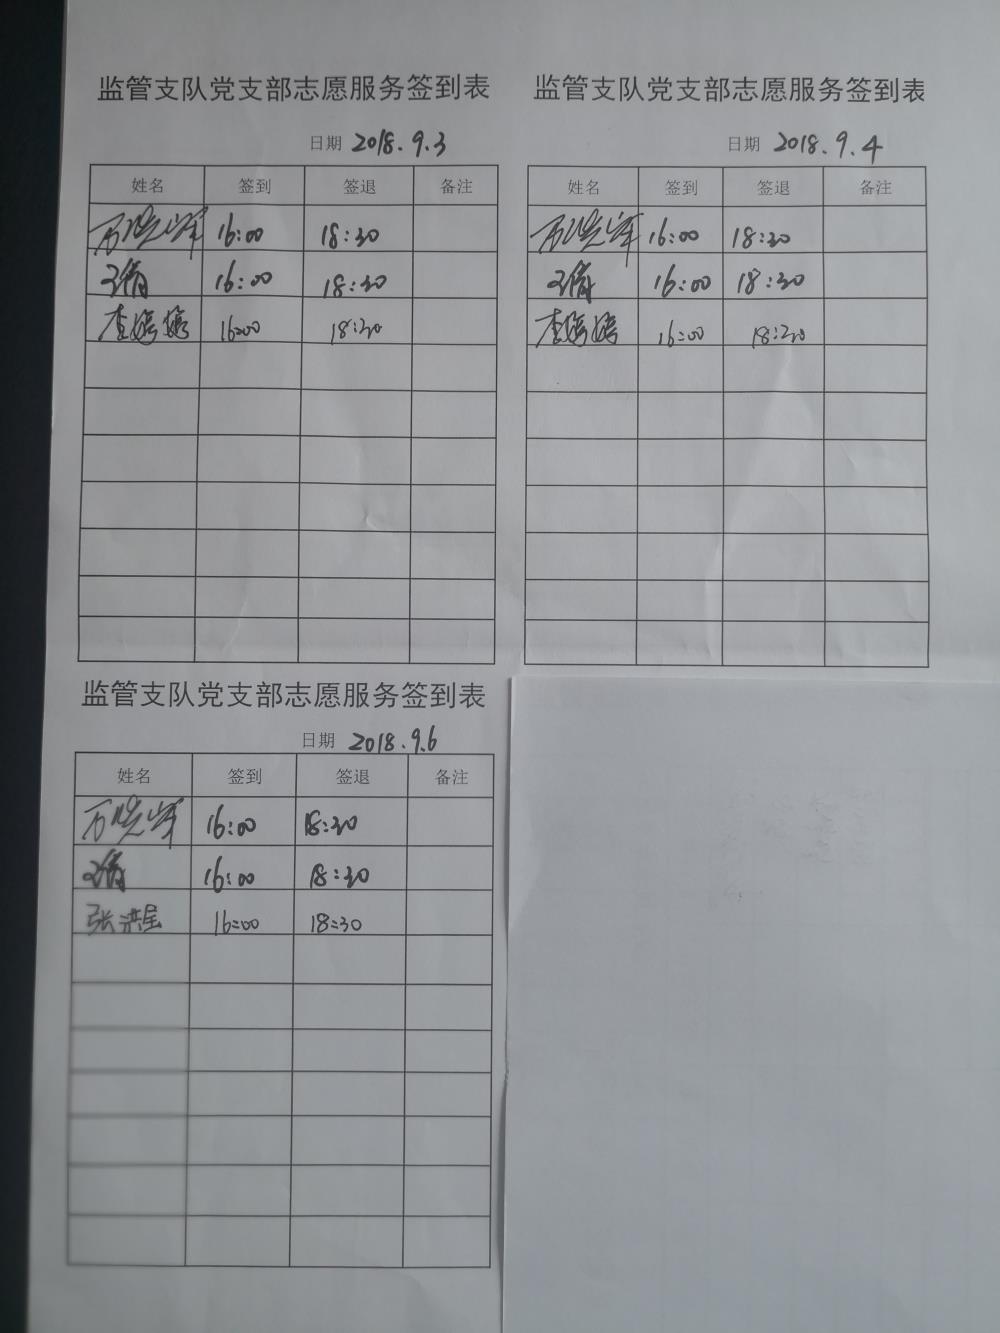 监管支队党支部志愿服务签到表
日期 2018.9.3
姓名 签到 签退 备注
万晓军 16:00 18:30
王倩 16:00 18:30
李婷婷 16:00 18:30
监管支队党支部志愿服务签到表
日期 2018.9.4
姓名 签到 签退 备注
万晓军 16:00 18:30
王倩 16:00 18:30
李婷婷 16:00 18:30
监管支队党支部志愿服务签到表
日期 2018.9.6
姓名 签到 签退 备注
万晓军 16:00 18:30
王倩 16:00 18:30
张洪星 16:00 18:30